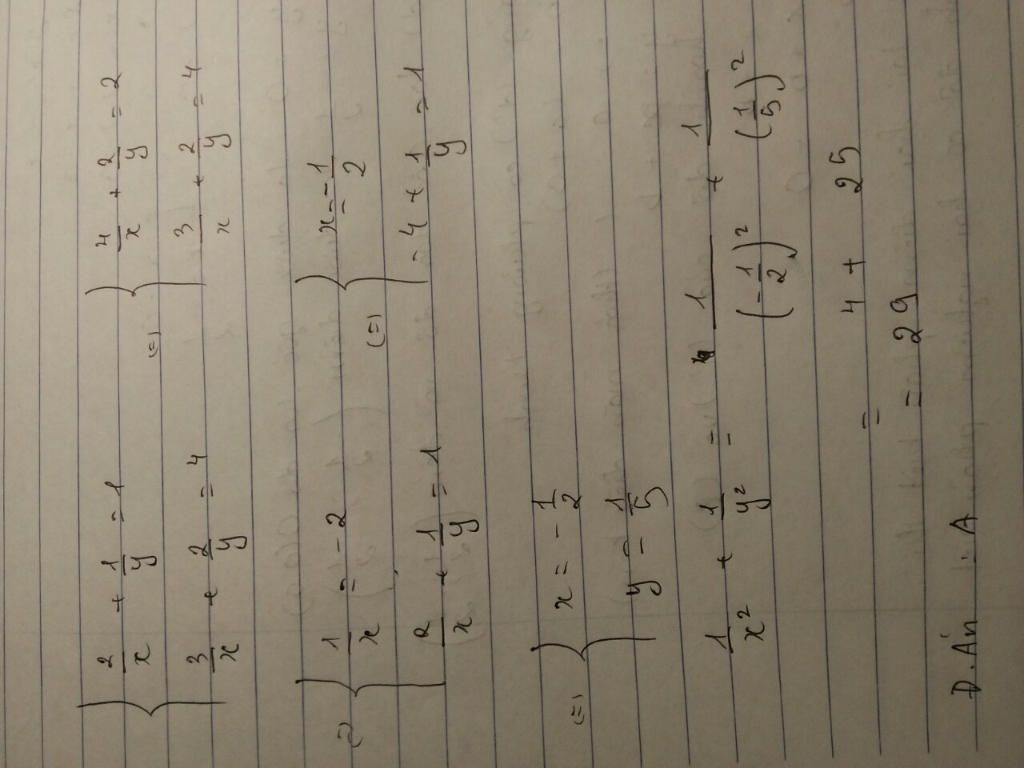 { 2/x + 1/y = 1 (=) { 4/x + 2/y = 2
3/x + 2/y = 4 3/x + 2/y = 4
(=) { 1/x = -2 (=) { x = -1/2
2/x + 1/y = 1 -4 + 1/y = 1
(=) { x = -1/2
y = 1/5
1/x² + 1/y² = 1/(-1/2)² + 1/(1/5)²
= 4 + 25
= 29
Đ.Án : A